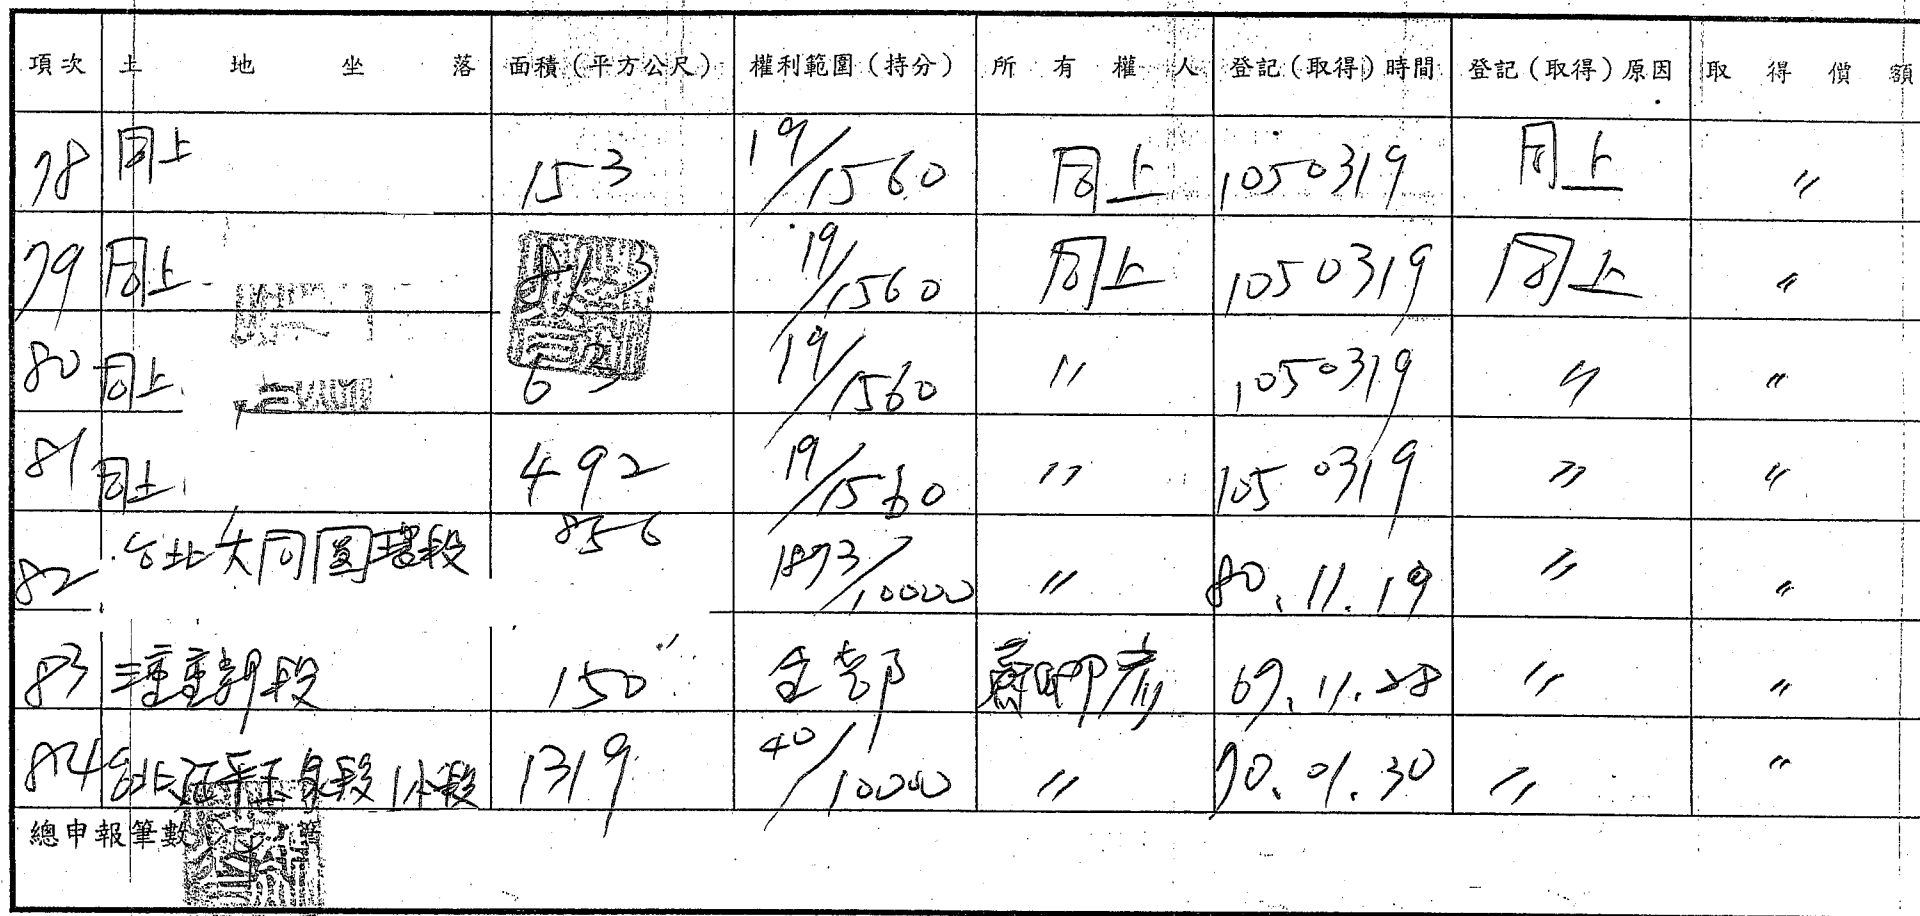 項次 土地坐落 面積(平方公尺) 權利範圍(持分) 所有權人 登記(取得)時間 登記(取得)原因 取得價額
78 同上 153 19/1560 同上 1050319 同上 〃
79 同上 3 19/1560 同上 1050319 同上 〃
80 同上 63 19/1560 〃 1050319 〃 〃
81 同上 492 19/1560 〃 1050319 〃 〃
82 台北大同圓環段 856 1893/10000 〃 80.11.19 〃 〃
83 三重重新段 150 全部 69.11.28 〃 〃
84 台北延平玉泉段1小段 1319 40/10000 〃 90.01.30 〃 〃
總申報筆數 筆